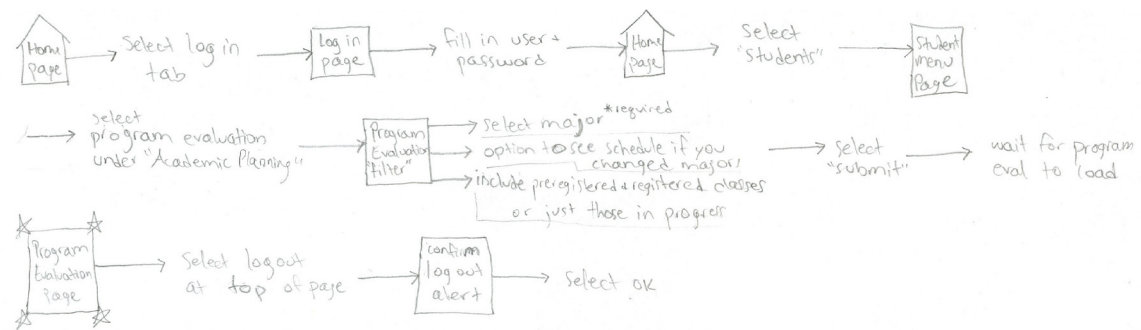 Home
page
Select log in
tab
Log in
page
fill in user +
password
Home
page
Select
"Students"
Student
menu
Page
select
program evaluation
under "Academic Planning"
Program
Evaluation
"filter"
select major *required
option to see schedule if you
changed major!
include preregistered + registered classes
or just those in progress
select
"submit"
wait for program
eval to load
Program
Evaluation
Page
Select logout
at top of page
confirm
log out
alert
select ok